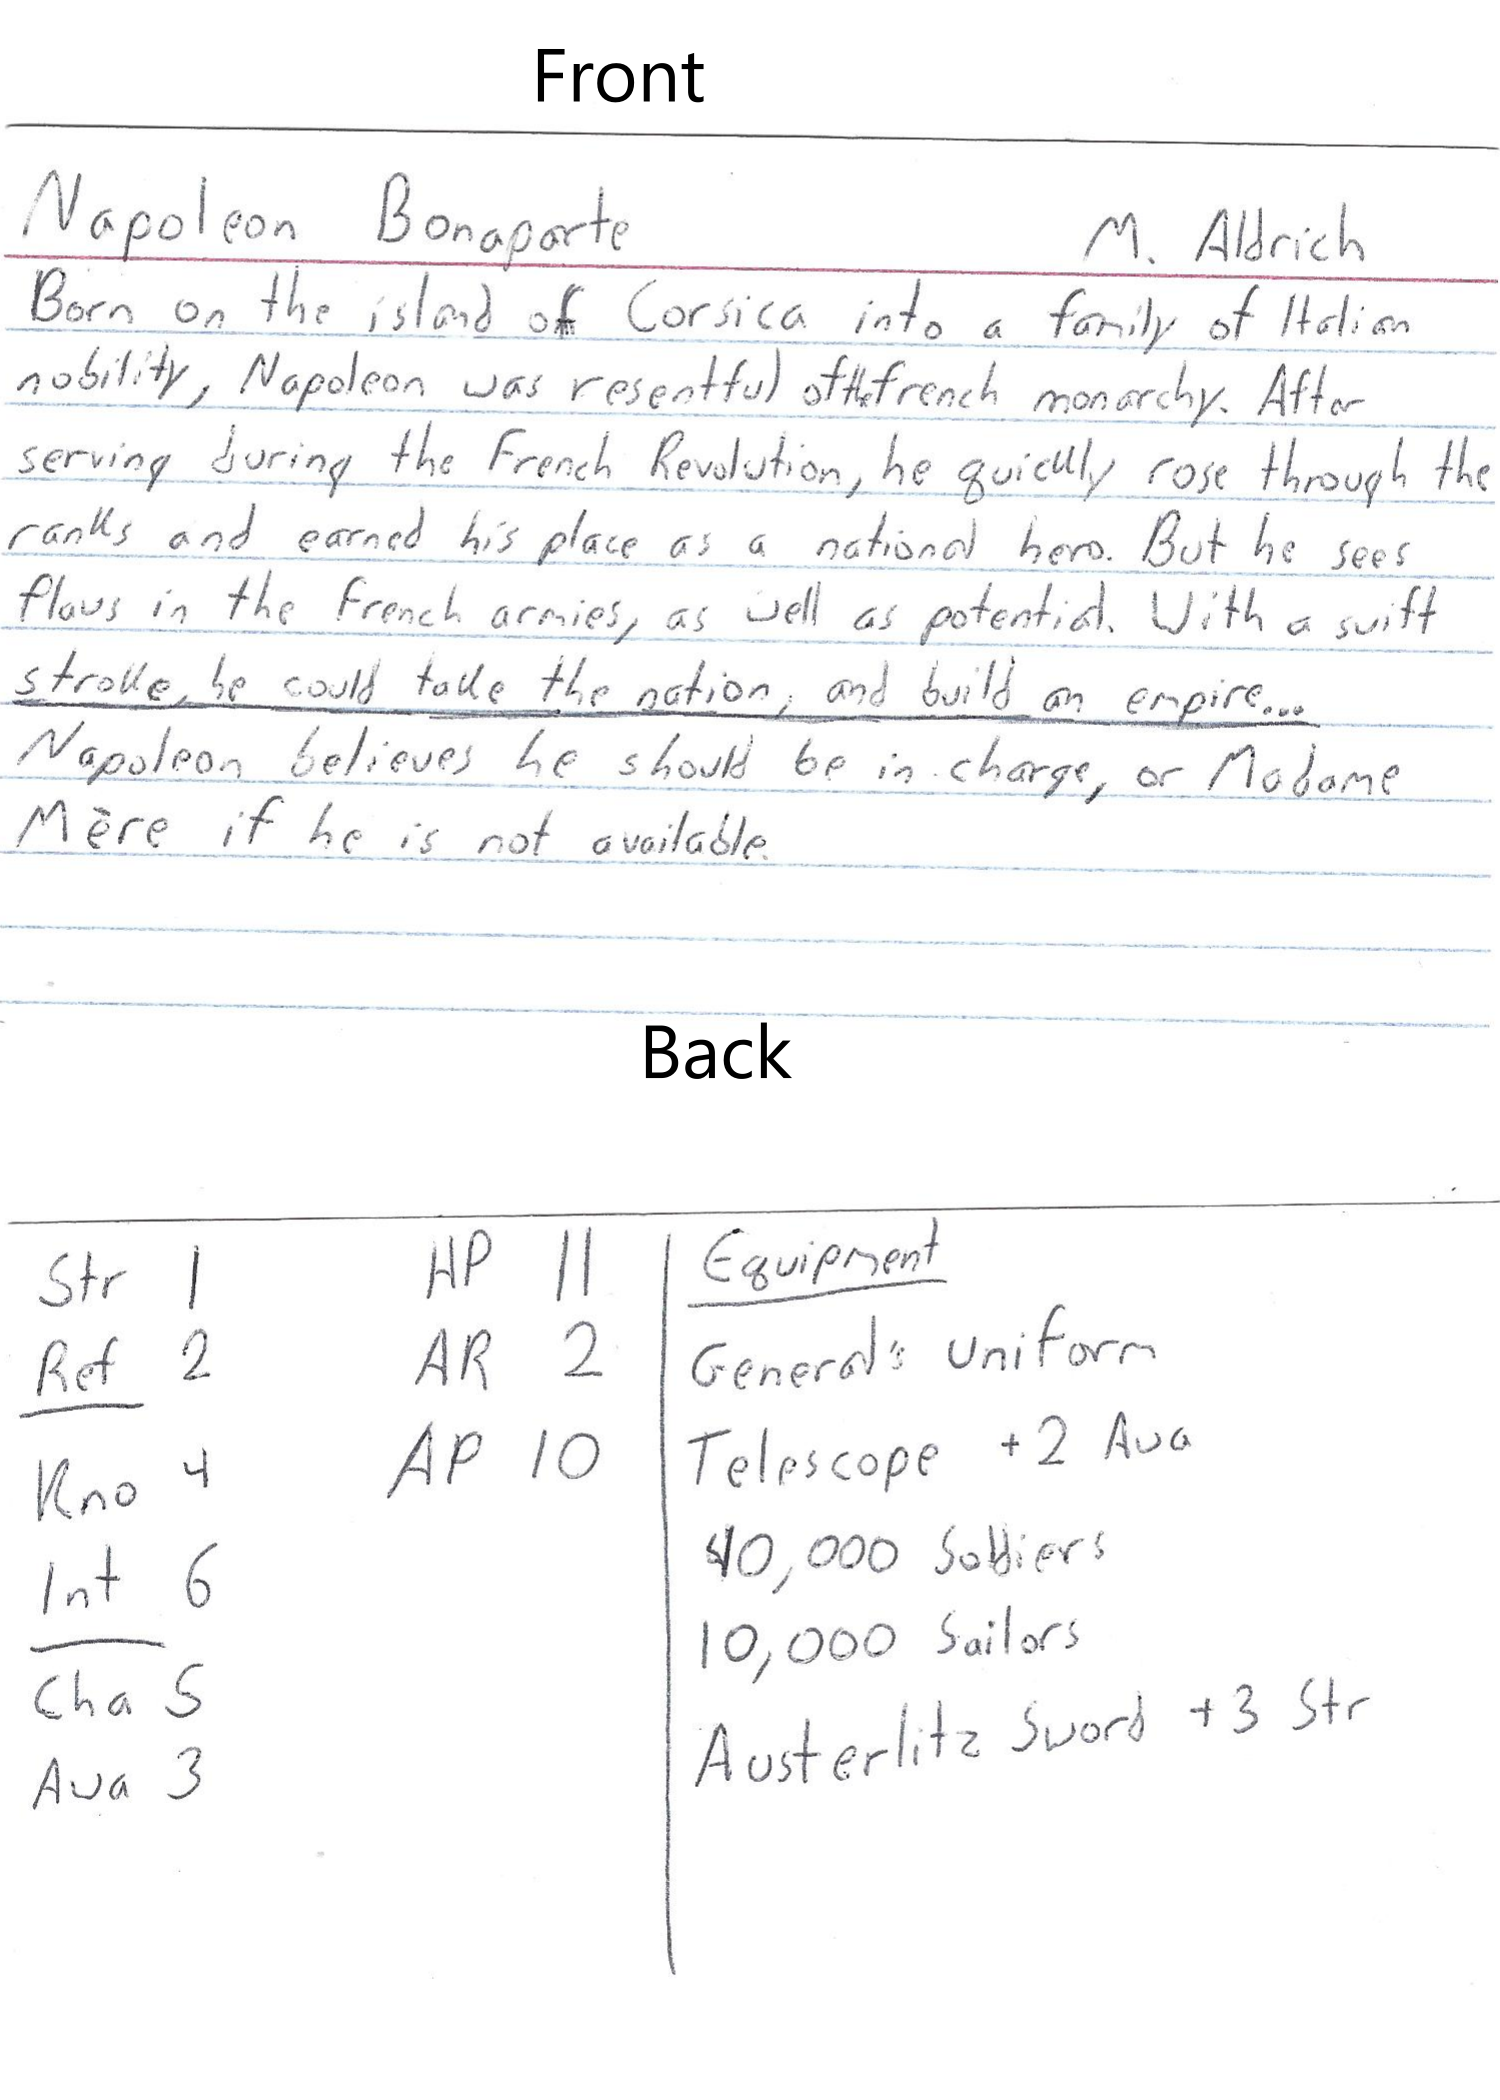 Front
Napoleon Bonaparte M. Aldrich
Born on the island of Corsica into a family of Italian
nobility, Napoleon was resentful of the french monarchy. After
serving during the French Revolution, he quickly rose through the
ranks and earned his place as a national hero. But he sees
flaws in the French armies, as well as potential. With a swift
stroke, he could take the nation, and build an empire...
Napoleon believes he should be in charge, or Madame
Mère if he is not available.
Back
Str 1 HP 11 Equipment
Ref 2 AR 2 General's uniform
Kno 4 AP 10 Telescope +2 Awa
Int 6 40,000 Soldiers
10,000 Sailors
Cha 5 Austerlitz Sword +3 Str
Awa 3